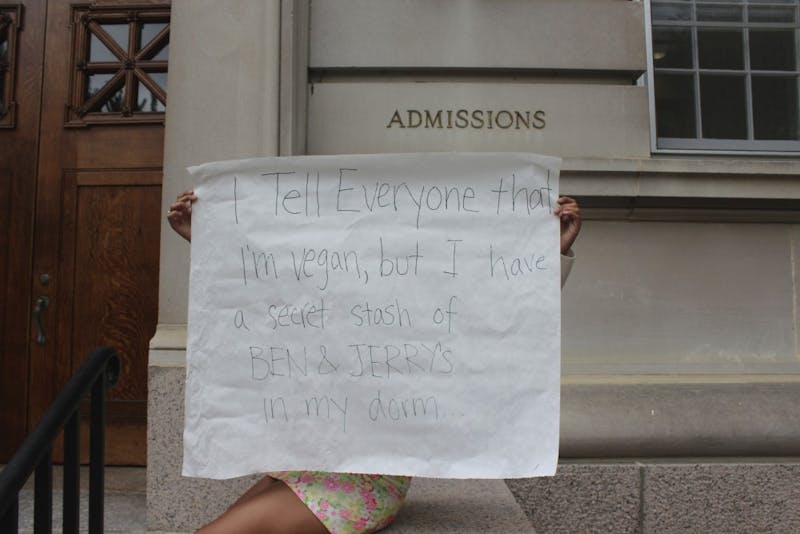 ADMISSIONS
I Tell Everyone that
I'm vegan, but I have
a secret stash of
BEN & JERRY'S
in my dorm...